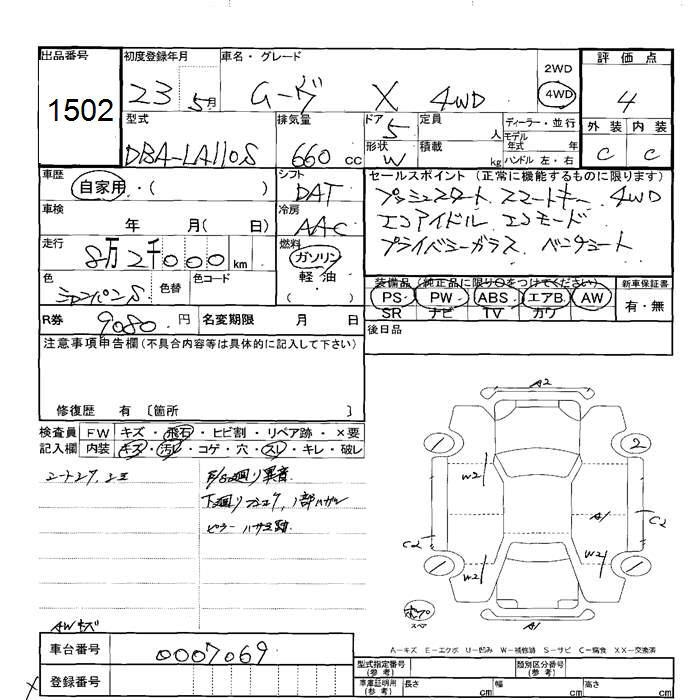 出品番号 1502
初度登録年月 23 5月
車名・グレード X 4WD
2WD
4WD
評価点 4
外装 内装
C C
型式 DBA-LA110S
排気量 660 cc
ドア 5
形状 W
定員 人
積載 kg
ディーラー・並行
モデル年式 年
ハンドル 左・右
車歴 自家用・( )
車検 年 月( 日)
走行 8万2千000 km
色 シャンパンS
色替
色コード
シフト DAT
冷房 AAC
燃料 ガソリン・軽油・( )
セールスポイント (正常に機能するものに限ります)
プッシュスタート スマートキー 4WD
エコアイドル エコモード
プライバシーガラス ベンチシート
装備品 (純正品に限り○をつけてください)
PS PW ABS エアB AW
SR ナビ TV カワ
新車保証書
有・無
後日品
R券 9080円
名変期限 月 日
注意事項申告欄(不具合内容等は具体的に記入して下さい)
修復歴 有 〔箇所 〕
検査員記入欄
FW キズ・飛石・ヒビ割・リペア跡・×要
内装 キズ・汚レ・コゲ・穴・スレ・キレ・破レ
異音
ピラー ハサミ跡
A2
1 2
W2
A1
C2 C2
W2 W2
1 1
A1
スペア
AWキズ
A-キズ E-エクボ U-凹み W-補修跡 S-サビ C-腐食 XX-交換済
車台番号 0007069
登録番号
型式指定番号(参考)
類別区分番号(参考)
車庫証明用(参考) 長さ cm 幅 cm 高さ cm